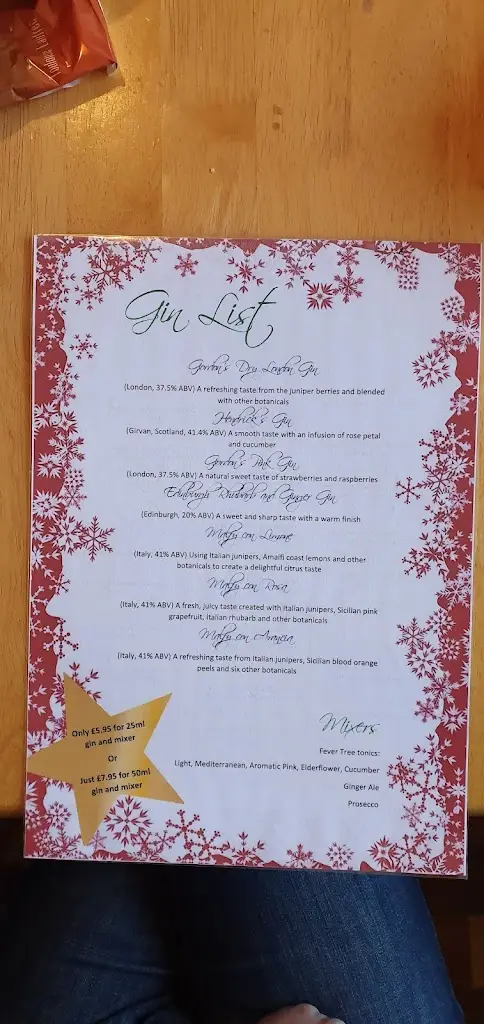 Gin List
Gordon's Dry London Gin
(London, 37.5% ABV) A refreshing taste from the juniper berries and blended
with other botanicals
Hendrick's Gin
(Girvan, Scotland, 41.4% ABV) A smooth taste with an infusion of rose petal
and cucumber
Gordon's Pink Gin
(London, 37.5% ABV) A natural sweet taste of strawberries and raspberries
Edinburgh Rhubarb and Ginger Gin
(Edinburgh, 20% ABV) A sweet and sharp taste with a warm finish
Malfy con Limone
(Italy, 41% ABV) Using Italian junipers, Amalfi coast lemons and other
botanicals to create a delightful citrus taste
Malfy con Rosa
(Italy, 41% ABV) A fresh, juicy taste created with Italian junipers, Sicilian pink
grapefruit, Italian rhubarb and other botanicals
Malfy con Arancia
(Italy, 41% ABV) A refreshing taste from Italian junipers, Sicilian blood orange
peels and six other botanicals
Only £5.95 for 25ml
gin and mixer
Or
Just £7.95 for 50ml
gin and mixer
Mixers
Fever Tree tonics:
Light, Mediterranean, Aromatic Pink, Elderflower, Cucumber
Ginger Ale
Prosecco